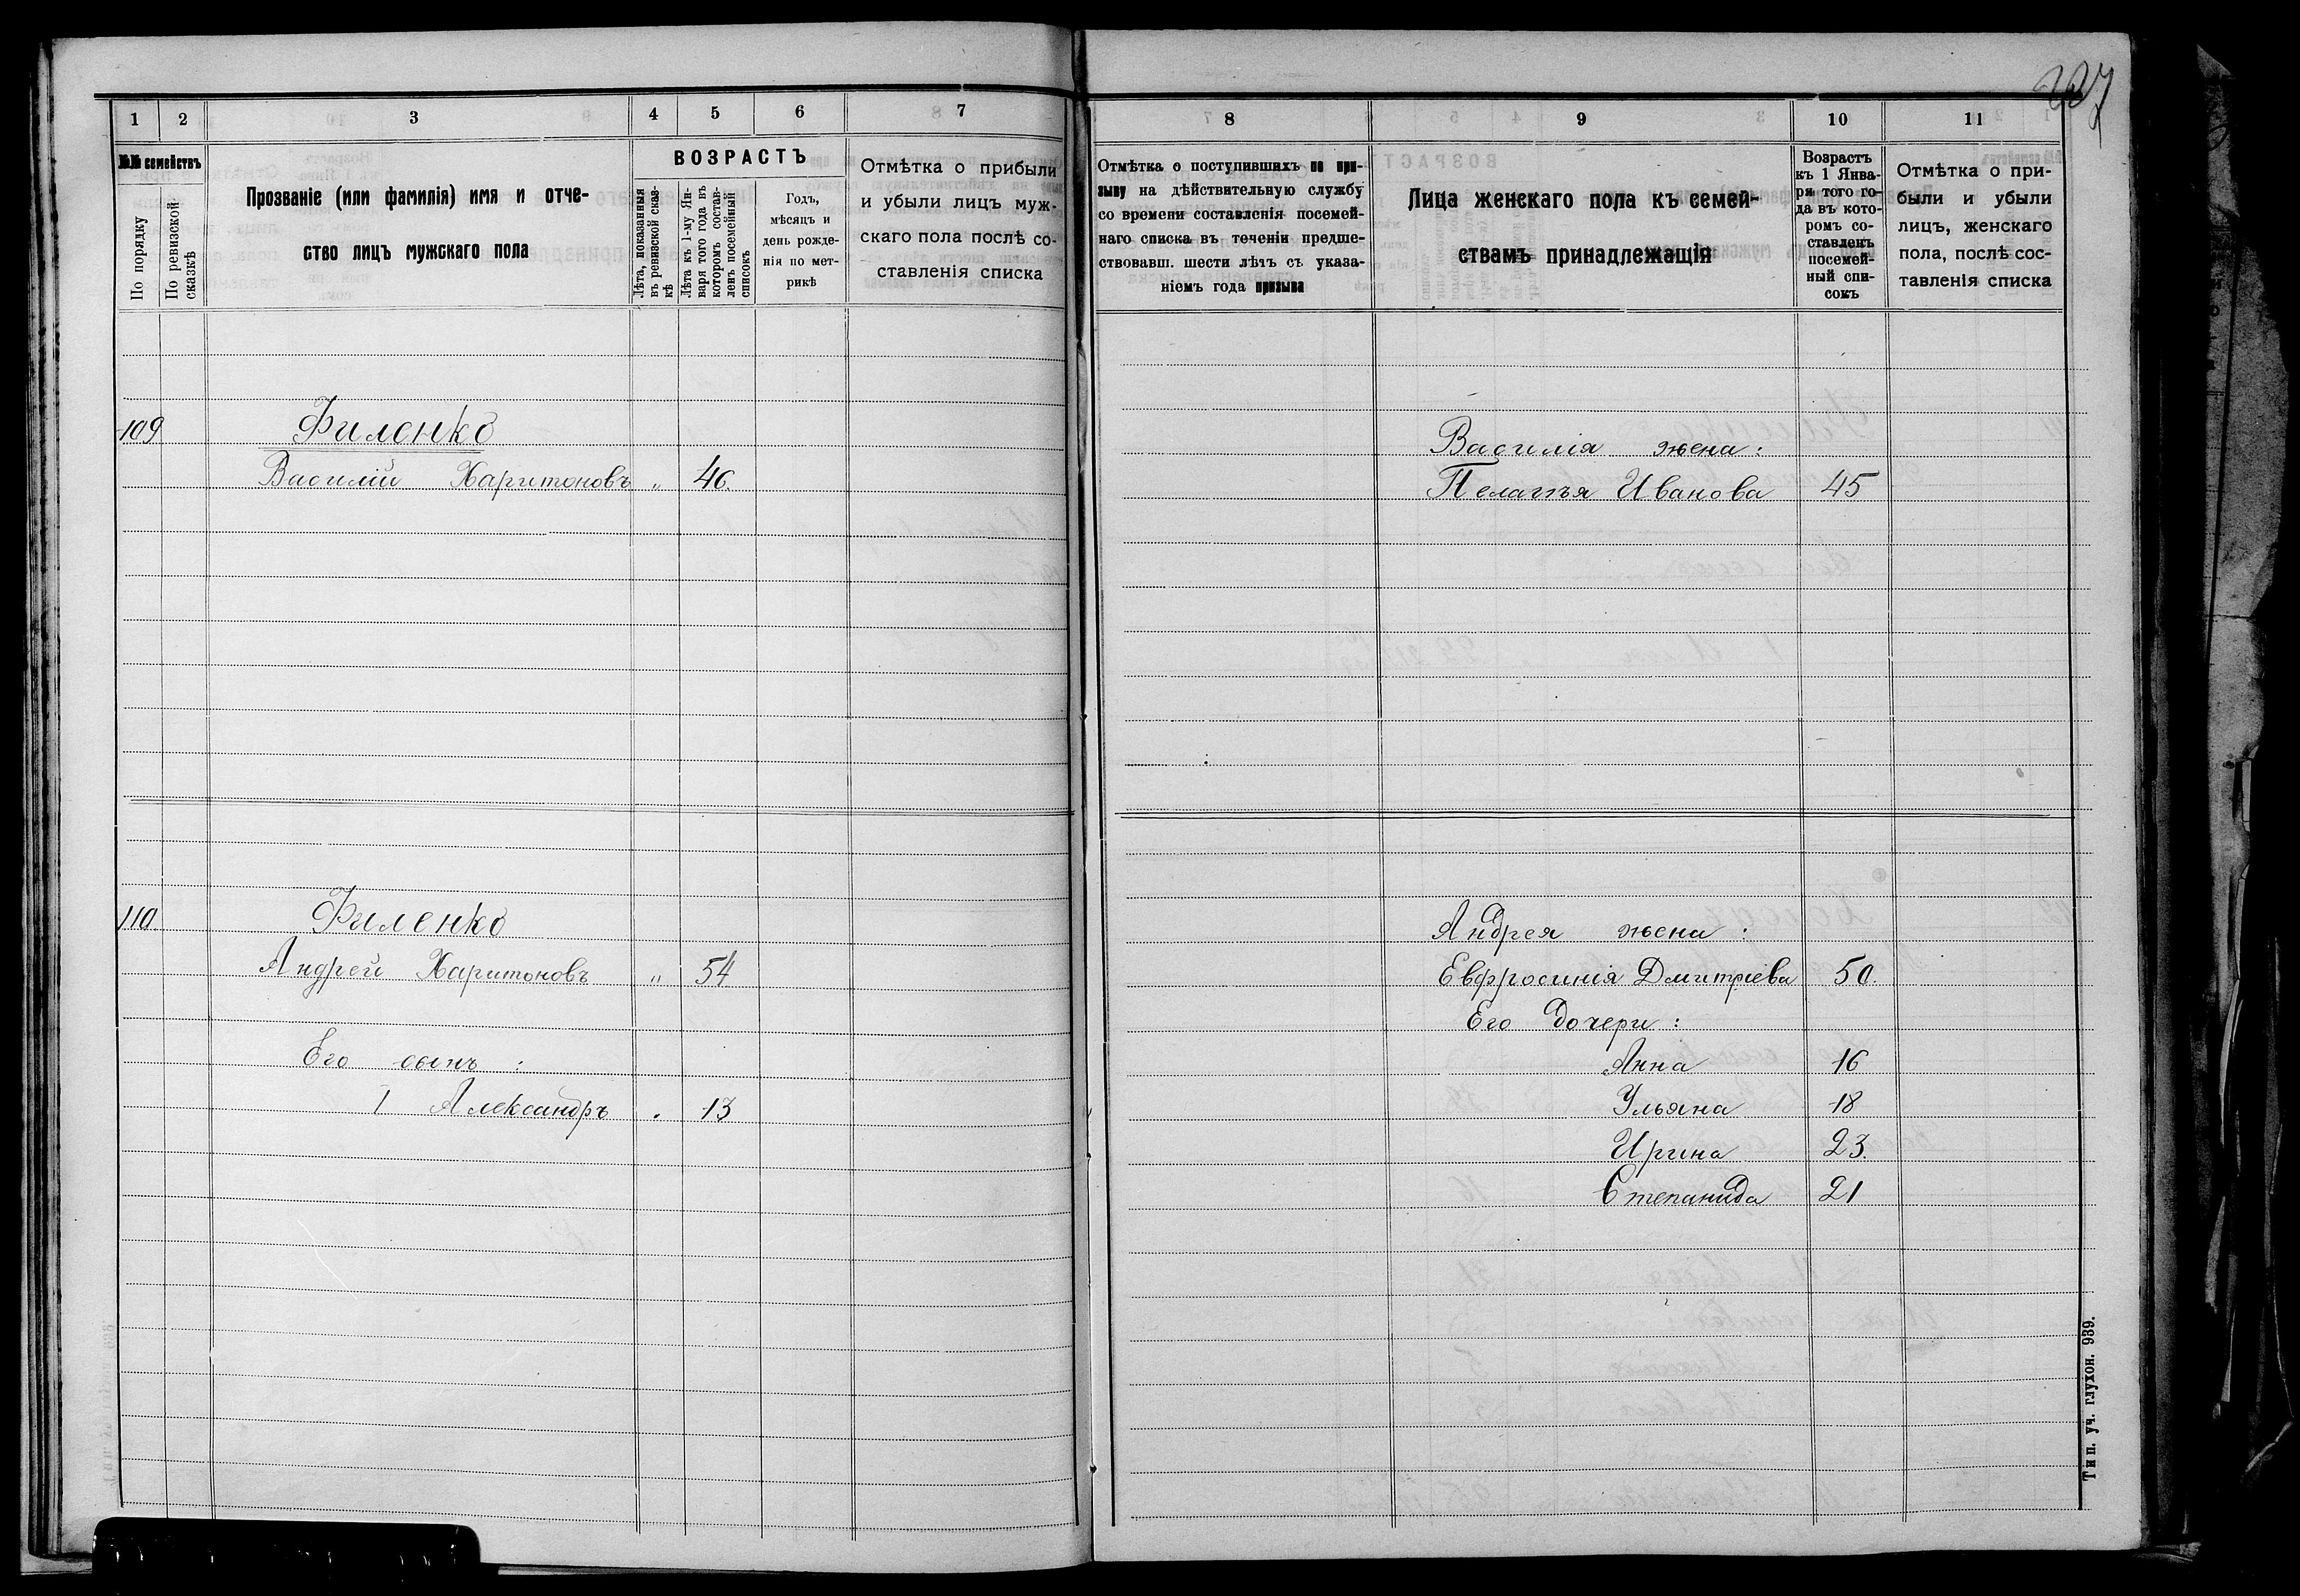 1 2 3 4 5 6 7
№№ семействъ
По порядку
По ревизской сказкѣ
Прозваніе (или фамилія) имя и отче-
ство лицъ мужскаго пола
ВОЗРАСТЪ
Лѣта, показанныя
въ ревизской сказ-
кѣ
Лѣта къ 1-му Ян-
варя того года въ
которомъ состав-
ленъ посемейный
списокъ
Годъ,
мѣсяцъ и
день рожде-
нія по мет-
рикѣ
Отмѣтка о прибыли
и убыли лицъ муж-
скаго пола послѣ со-
ставленія списка
109 Филенко
Василій Харитоновъ „ 46.
110. Филенко
Андрей Харитоновъ „ 54
Его сынъ:
1 Александръ „ 13
8 9 10 11
Отмѣтка о поступившихъ по при-
зыву на дѣйствительную службу
со времени составленія посемей-
наго списка въ теченіи предше-
ствовавш. шести лѣтъ съ указа-
ніемъ года призыва
Лица женскаго пола къ семей-
ствамъ принадлежащія
Возрастъ
къ 1 Янва-
ря того го-
да въ кото-
ромъ со-
ставленъ
посемей-
ный спи-
сокъ
Отмѣтка о при-
были и убыли
лицъ, женскаго
пола, послѣ сос-
тавленія списка
Василія жена:
Пелагѣя Иванова 45
Андрея жена:
Евфросинія Дмитріева 50.
Его дочери:
Анна 16
Ульяна 18
Ирина 23.
Степанида 21
Тип. уч. глухон. 939.